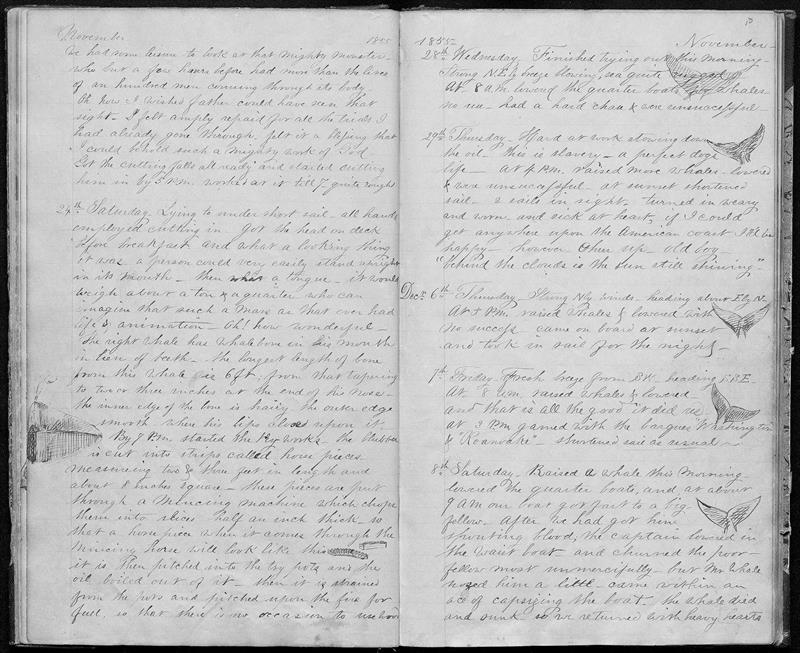 November 1855
We had some leisure to look at that mighty monster
who but a few hours before had more than the lives
of an hundred men coursing through its body
Oh how I wished father could have seen that
sight. I felt amply repaid for all the I
had already gone through, felt it a blessing that
I could behold such a mighty work of God.
Got the cutting falls all ready and started cutting
him in by 3 P.M. worked at it till 7 quite rough
24th Saturday. Lying to under short sail. all hands
employed cutting in. Got the head on deck
before breakfast and what a looking thing
it was a person could very easily stand upright
in its mouth — then what a tongue. it would
weigh about a ton & a quarter who can
imagine that such a mass as that ever had
life & animation — Oh! how wonderful —
The right whale has whalebone in his mouth
in lieu of teeth — the longest length of bone
from this whale is 6ft. from that tapering
to two or three inches at the end of his nose.
the inner edge of the bone is hairy the outer edge
smooth when his lips close upon it.
By 7 P.M. started the try works — the blubber
is cut into strips called horse pieces
measuring two & three feet in length and
about 8 inches square — these pieces are put
through a Mincing machine which chops
them into slices half an inch thick. so
that a horse piece when it comes through the
Mincing horse will look like this
it is then pitched into the try pots and the
oil boiled out of it — then it is strained
from the pots and pitched upon the fire for
fuel, so that there is no occasion to use wood
1855 November —
28th Wednesday. Finished trying out this morning —
Strong N.E.ly breeze blowing, sea quite rugged
At 8 a.m. lowered the quarter boats for whales
no sea — had a hard chase & were unsuccessful —
29th Thursday — Hard at work stowing down
the oil — this is slavery — a perfect dogs
life — at 4 P.M. raised more whales — lowered
& were unsuccessful — at sunset shortened
sail — 2 sails in sight. turned in weary
and worn and sick at heart, if I could
get anywhere upon the American coast I'd be
happy — however cheer up old boy —
"behind the clouds is the sun still shining" —
Decr 6th Thursday — Strong Nly winds — heading about E by N.
At 1 P.M. raised whales & lowered with
no success — came on board at sunset
and took in sail for the night —
7th Friday — Fresh breeze from heading
At 8 a.m. raised whales & lowered
and that is all the good it did us
at 3 P.M. gammed with the barques Washington
& "Roanoake" — shortened sail as usual —
8th Saturday — Raised a whale this Morning —
lowered the quarter boats, and at about
9 am our boat got fast to a big
fellow. After we had got him
spouting blood, the captain lowered in
the waist boat and churned the poor
fellow most unmercifully — but Mr Whale
him a little — came within an
ace of capsizing the boat. the whale died
and sunk so we returned with heavy hearts